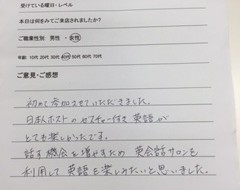 受けている曜日・レベル
本日は何をみてご来店されましたか?
ご職業性別: 男性 ・ 女性
年齢 10代 20代 30代 40代 50代 60代 70代
ご意見・ご感想
初めて参加させていただきました。
日本人ホストのゼスチャー付き英語が
とても楽しかったです。
話す機会を増やすため 英会話サロンも
利用して 英語を楽しみたいと思いました。